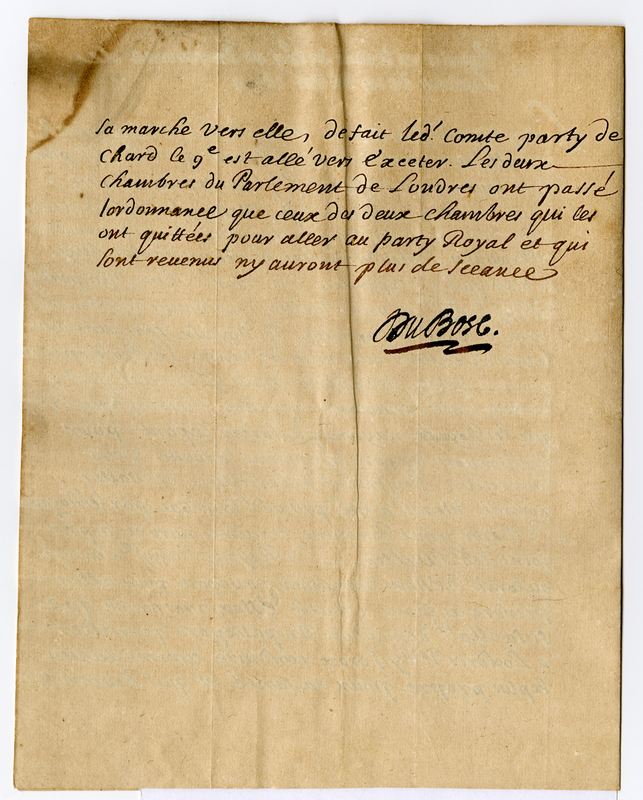 sa marche vers elle, de fait led.t Comte party de
chard le 9e est allé vers Exceter. Les deux
chambres du Parlement de Londres ont passé
lordonnance que ceux des deux chambres qui les
ont quittées pour aller au party Royal et qui
sont revenus ny auront plus de sceance
Du Bosc.